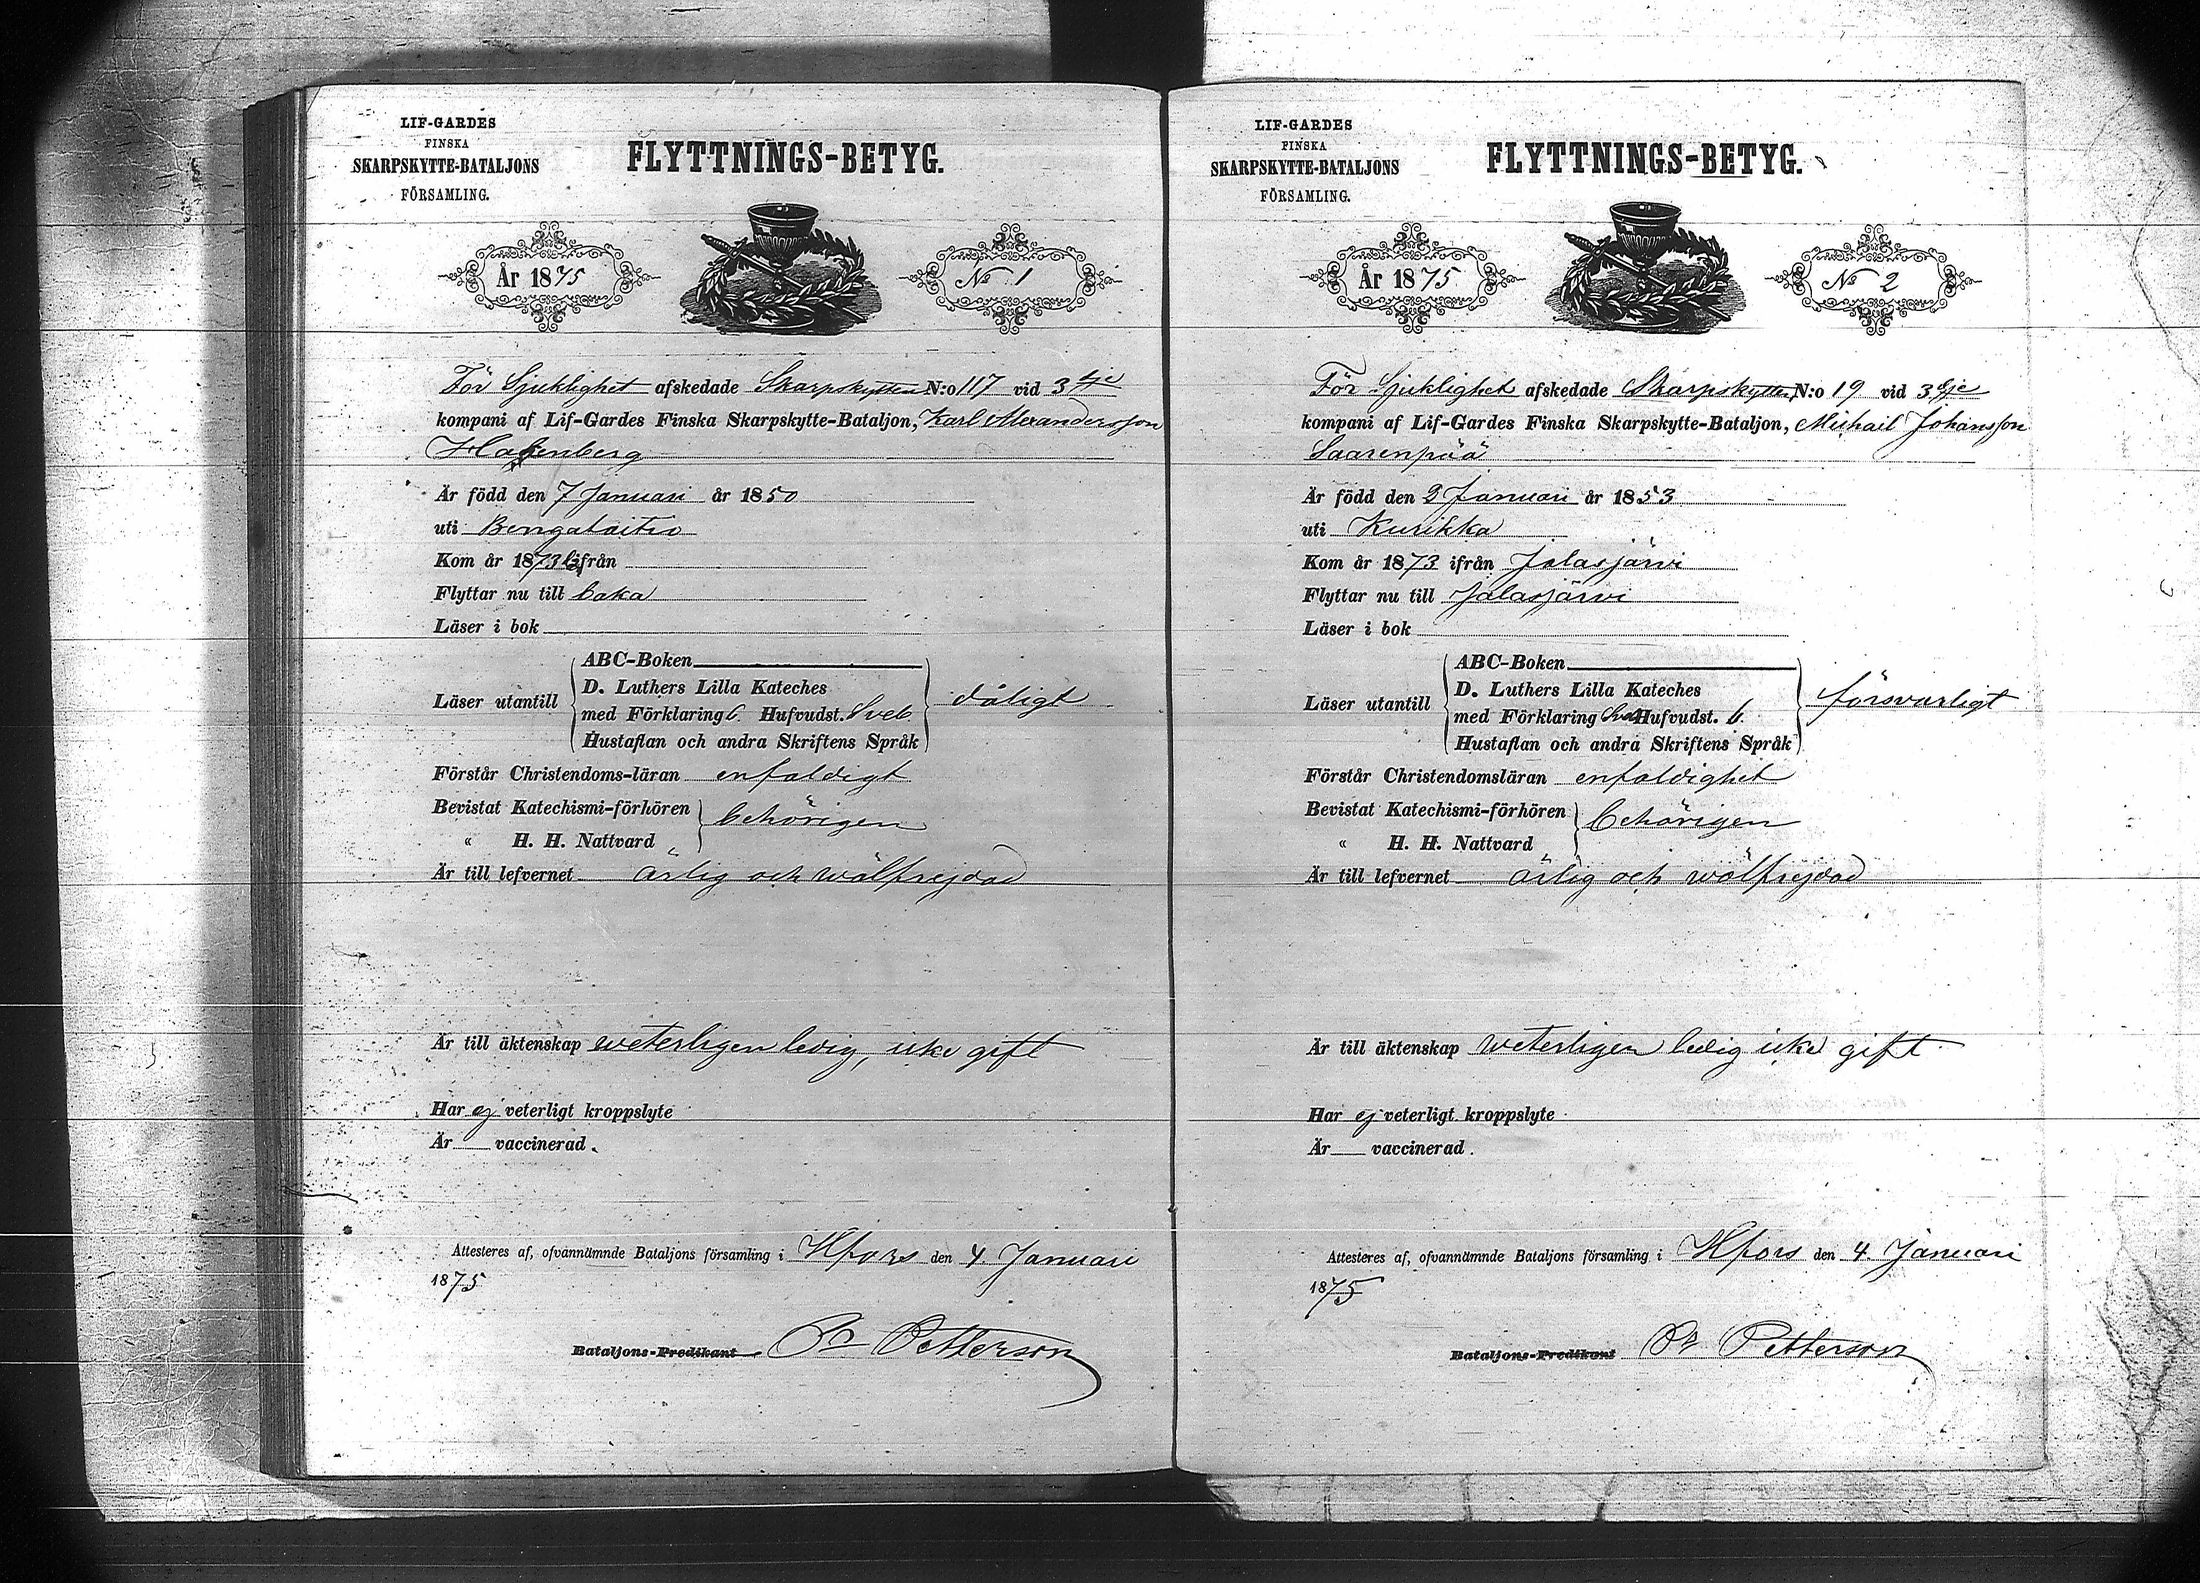 LIF-GARDES
FINSKA
SKARPSKYTTE-BATALJONS
FÖRSAMLING.
FLYTTNINGS-BETYG.
År 1875
No 1
För Sjuklighet afskedade Skarpskytten N:o 117 vid 3dje
kompani af Lif-Gardes Finska Skarpskytte-Bataljon, Karl Alexandersson
Är född den 7 Januari år 1850
uti Bengtskär
Kom år 1873 ifrån
Flyttar nu till
Läser i bok
ABC-Boken
Läser utantill
D. Luthers Lilla Kateches
med Förklaring 6. Hufvudst. Sveb.
Hustaflan och andra Skriftens Språk
dåligt
Förstår Christendoms-läran enfaldigt
Bevistat Katechismi-förhören
" H. H. Nattvard
behörigen
Är till lefvernet ärlig och wälfrejdad
Är till äktenskap weterligen ledig, icke gift
Har ej veterligt kroppslyte
Är vaccinerad.
Attesteres af, ofvannämnde Bataljons församling i Hfors den 4. Januari
1875
Bataljons-Predikant Petterson
LIF-GARDES
FINSKA
SKARPSKYTTE-BATALJONS
FÖRSAMLING.
FLYTTNINGS-BETYG.
År 1875
No 2
För Sjuklighet afskedade Skarpskytten N:o 19 vid 3dje
kompani af Lif-Gardes Finska Skarpskytte-Bataljon, Michail Johansson
Saarenpää
Är född den 2 Januari år 1853
uti Kurikka
Kom år 1873 ifrån Jalasjärvi
Flyttar nu till Jalasjärvi
Läser i bok
ABC-Boken
Läser utantill
D. Luthers Lilla Kateches
med Förklaring Sveb Hufvudst. 6.
Hustaflan och andra Skriftens Språk
försvarligt
Förstår Christendomsläran enfaldighet
Bevistat Katechismi-förhören
" H. H. Nattvard
behörigen
Är till lefvernet ärlig och wälfrejdad
Är till äktenskap weterligen ledig icke gift
Har ej veterligt kroppslyte
Är vaccinerad.
Attesteres af, ofvannämnde Bataljons församling i Hfors den 4. Januari
1875
Bataljons-Predikant Petterson